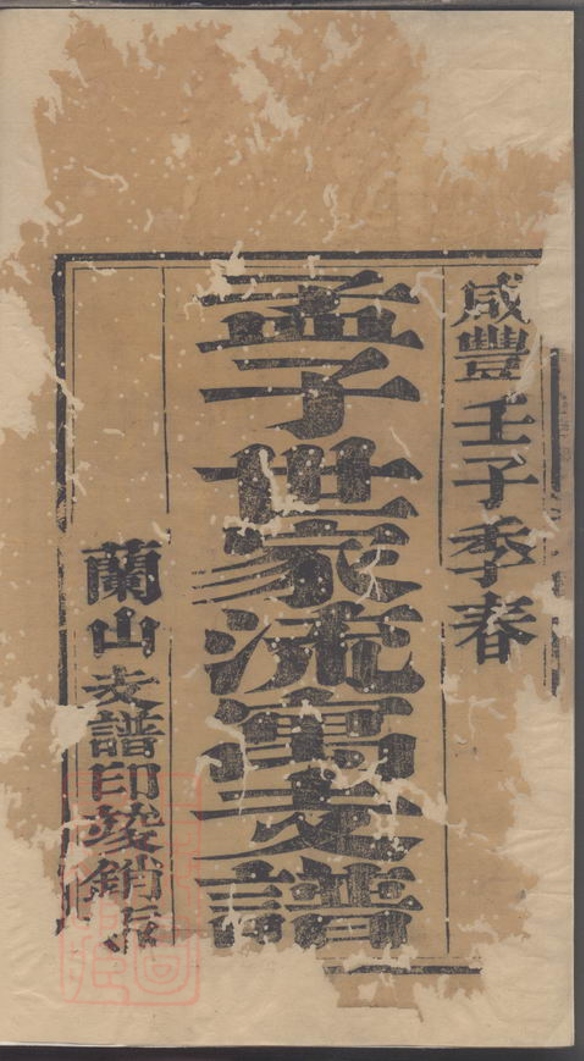 咸豐壬子季春
孟子世家流寓支譜
蘭山支譜印竣銷